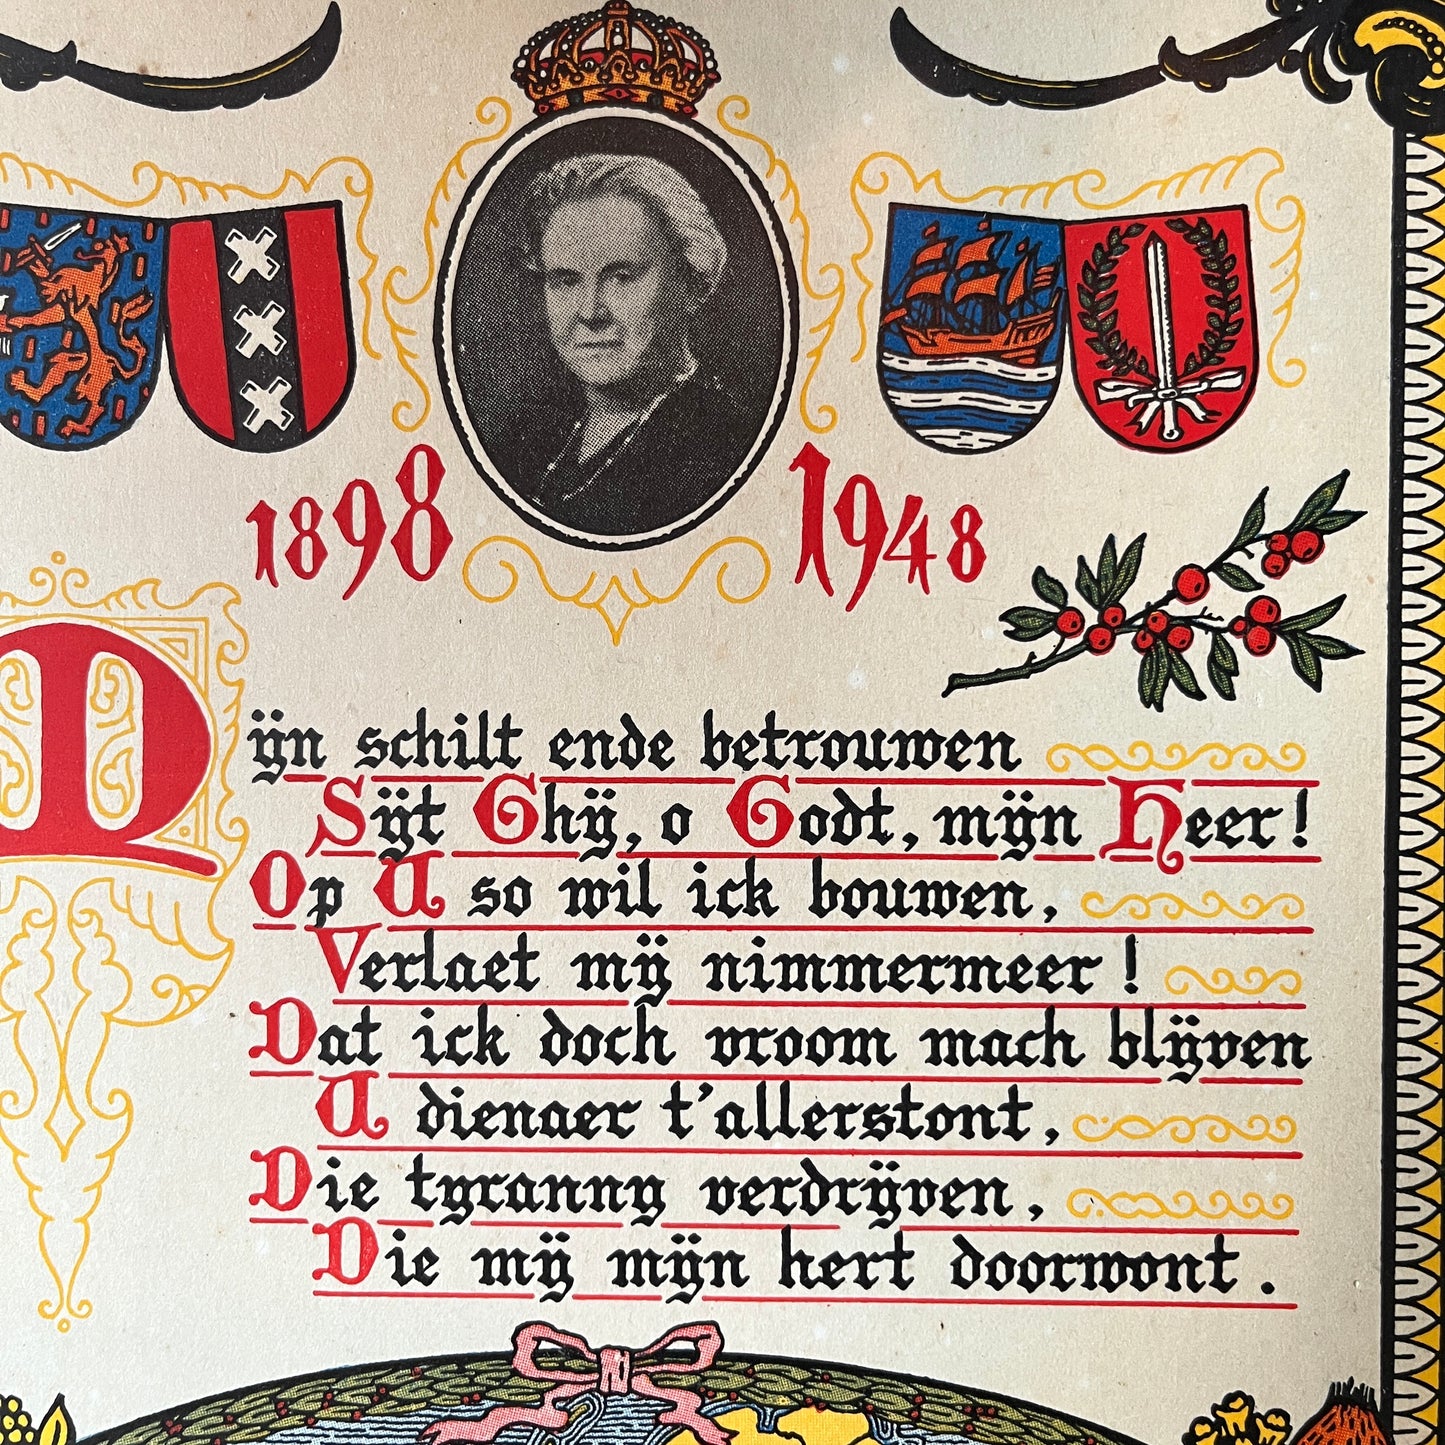 1898 1948
Mÿn schilt ende betrouwen
Sÿt Ghÿ, o Godt, mÿn Heer!
Op U so wil ick bouwen,
Verlaet mÿ nimmermeer!
Dat ick doch vroom mach blÿven
U dienaer t'allerstont,
Die tyranny verdrÿven,
Die mÿ mÿn hert doorwont.